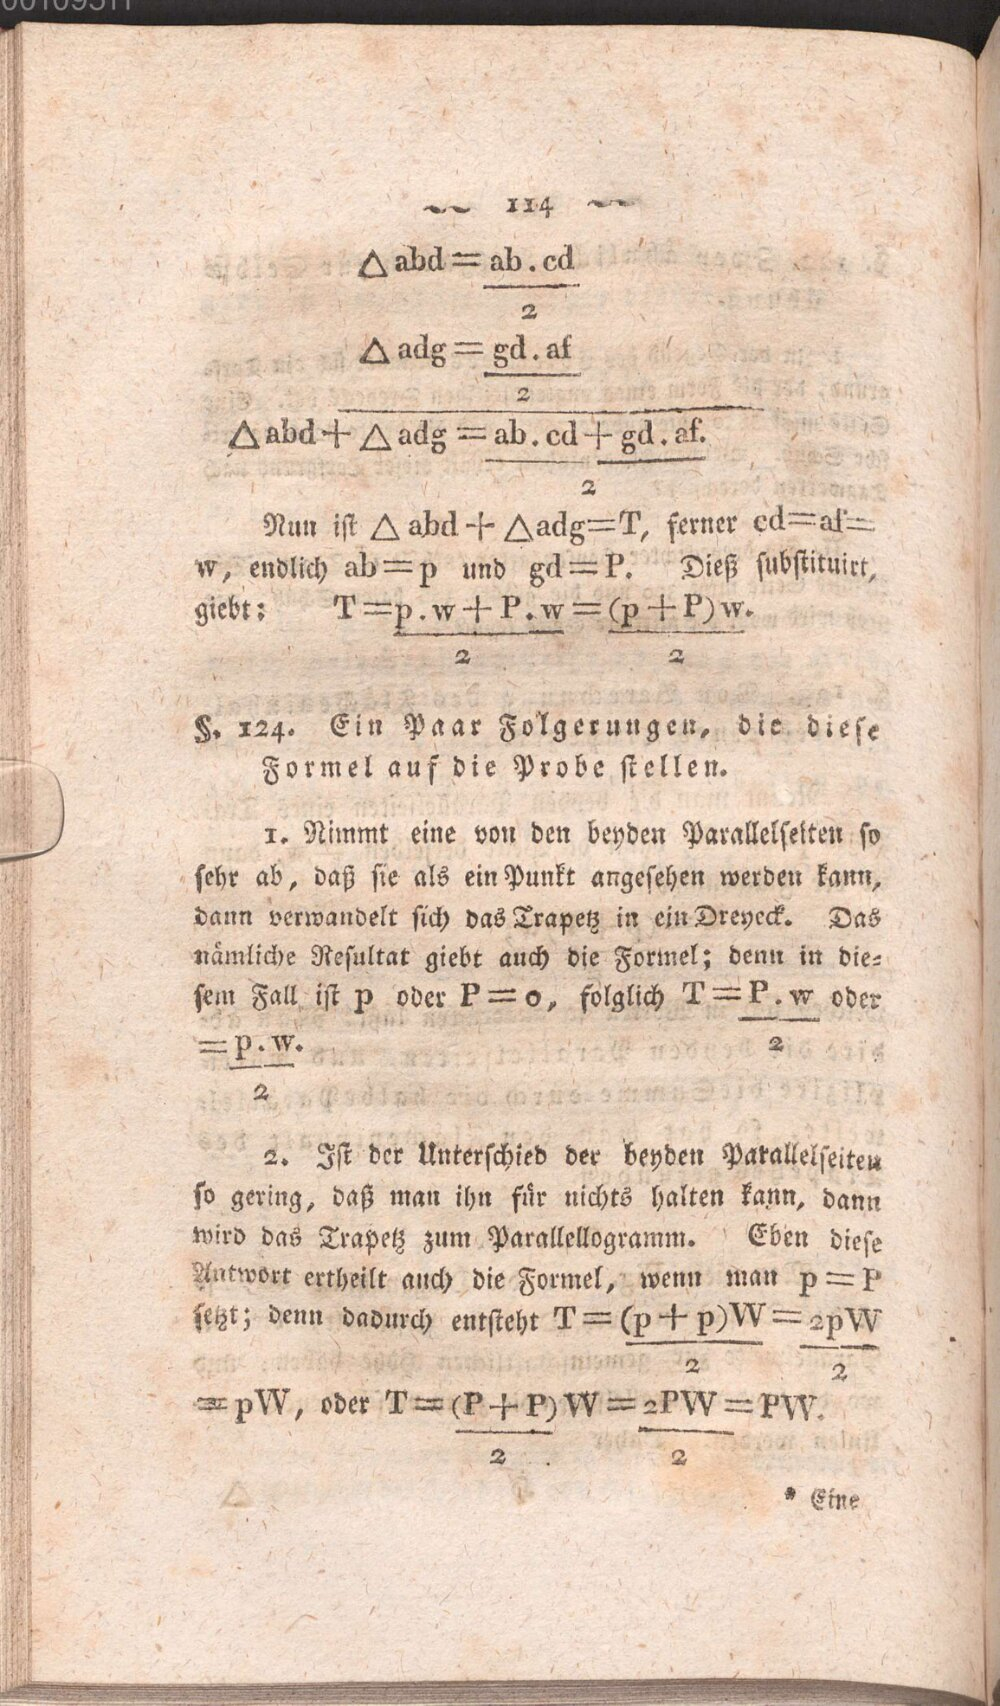 114
△ abd = ab . cd
2
△ adg = gd . af
2
△ abd + △ adg = ab . cd + gd . af.
2
Nun ist △ abd + △ adg = T, ferner cd = af =
w, endlich ab = p und gd = P. Dieß substituirt,
giebt: T = p . w + P . w = (p + P) w.
2 2
§. 124. Ein Paar Folgerungen, die diese
Formel auf die Probe stellen.
1. Nimmt eine von den beyden Parallelseiten so
sehr ab, daß sie als ein Punkt angesehen werden kann,
dann verwandelt sich das Trapetz in ein Dreyeck. Das
nämliche Resultat giebt auch die Formel; denn in die-
sem Fall ist p oder P = 0, folglich T = P . w oder
= p . w. 2
2
2. Ist der Unterschied der beyden Parallelseiten
so gering, daß man ihn für nichts halten kann, dann
wird das Trapetz zum Parallellogramm. Eben diese
Antwort ertheilt auch die Formel, wenn man p = P
setzt; denn dadurch entsteht T = (p + p) W = 2pW
2 2
= pW, oder T = (P + P) W = 2PW = PW.
2 2
* Eine